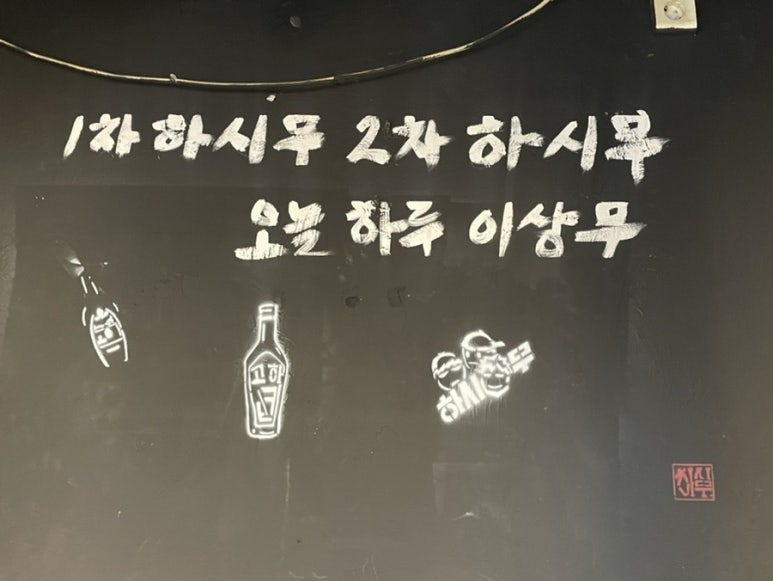 1차 하시무 2차 하시무
오늘 하루 이상무
고하
하시무